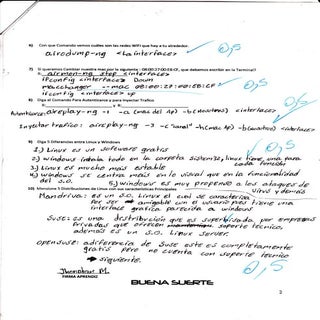 6) Con que Comando vemos cuales son las redes WIFI que hay a tu alrededor.
airodump-ng <La interface>
0,5
7) Si queremos Cambiar nuestra mac por la siguiente : 08:00:27:00:5B:CF, que debemos escribir en la Terminal?
airmon-ng stop <interface>
ifconfig <interface> Down
macchanger --mac 08:00:27:00:5B:CF
ifconfig <interface> up
0,5
8) Diga el Comando Para Autenticarse y para Inyectar Trafico.
Autenticarse: aireplay-ng -1 -a (mac del AP) -h (nosotros) <interface>
Inyectar trafico: aireplay-ng -3 -h (mac AP) -b (nosotros) <interface>
9) Diga 5 Diferencias entre Linux y Windows
1) Linux es un software gratis
2) windows instala todo en la carpeta sistem32, Linux tiene una para
cada función
3) Linux es mucho mas estable
4) windows se centra mas en lo visual que en la funcionalidad
del S.O.
5) windows es muy propenso a los ataques de
virus y demas
10) Mencione 3 Distribuciones de Linux con sus características Principales
Mandriva: es un S.O. Linux el cual se caracteriza
Por ser amigable con el usuario pues tiene una
interface grafica parecida a windows
Suse: es una distribución que es por empresas
Privadas que ofrecen soporte tecnico,
además es un S.O. Linux server.
openSuse: a diferencia de Suse este es completamente
gratis pero no cuenta con soporte tecnico
siguiente.
0,5
Jhonatan M.
FIRMA APRENDIZ
BUENA SUERTE
2